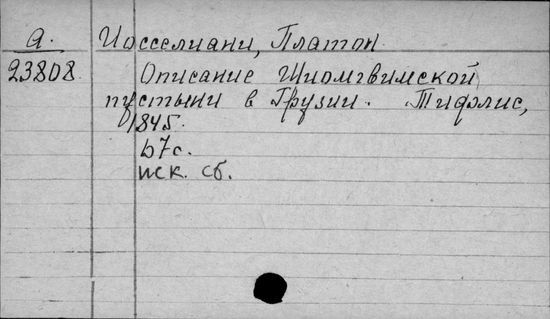 а. Иосселиани, Платон.
23808. Описание Шиомгвимской
пустыни в Грузии. Тифлис,
1845.
67с.
иск. сб.